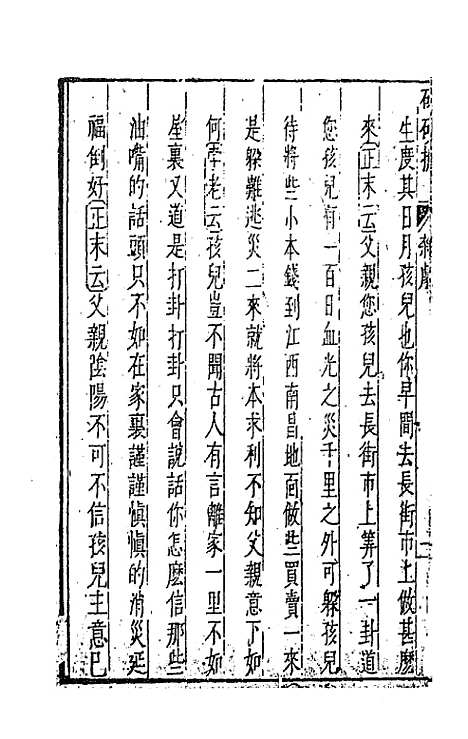 生度其日月孩兒也你早間去長街市上做甚麽
來正末云父親您孩兒去長街市上筭了一卦道
您孩兒有一百日血光之災千里之外可躲孩兒
待將些小本錢到江西南昌地面做些買賣一來
是躲離逃災二來就將本求利不知父親意下如
何孛老云孩兒豈不聞古人有言離家一里不如
屋裏又道是打卦打卦只會說話你怎麽信那些
油嘴的話頭只不如在家裏謹謹慎慎的消災延
福倒好正末云父親陰陽不可不信孩兒主意已